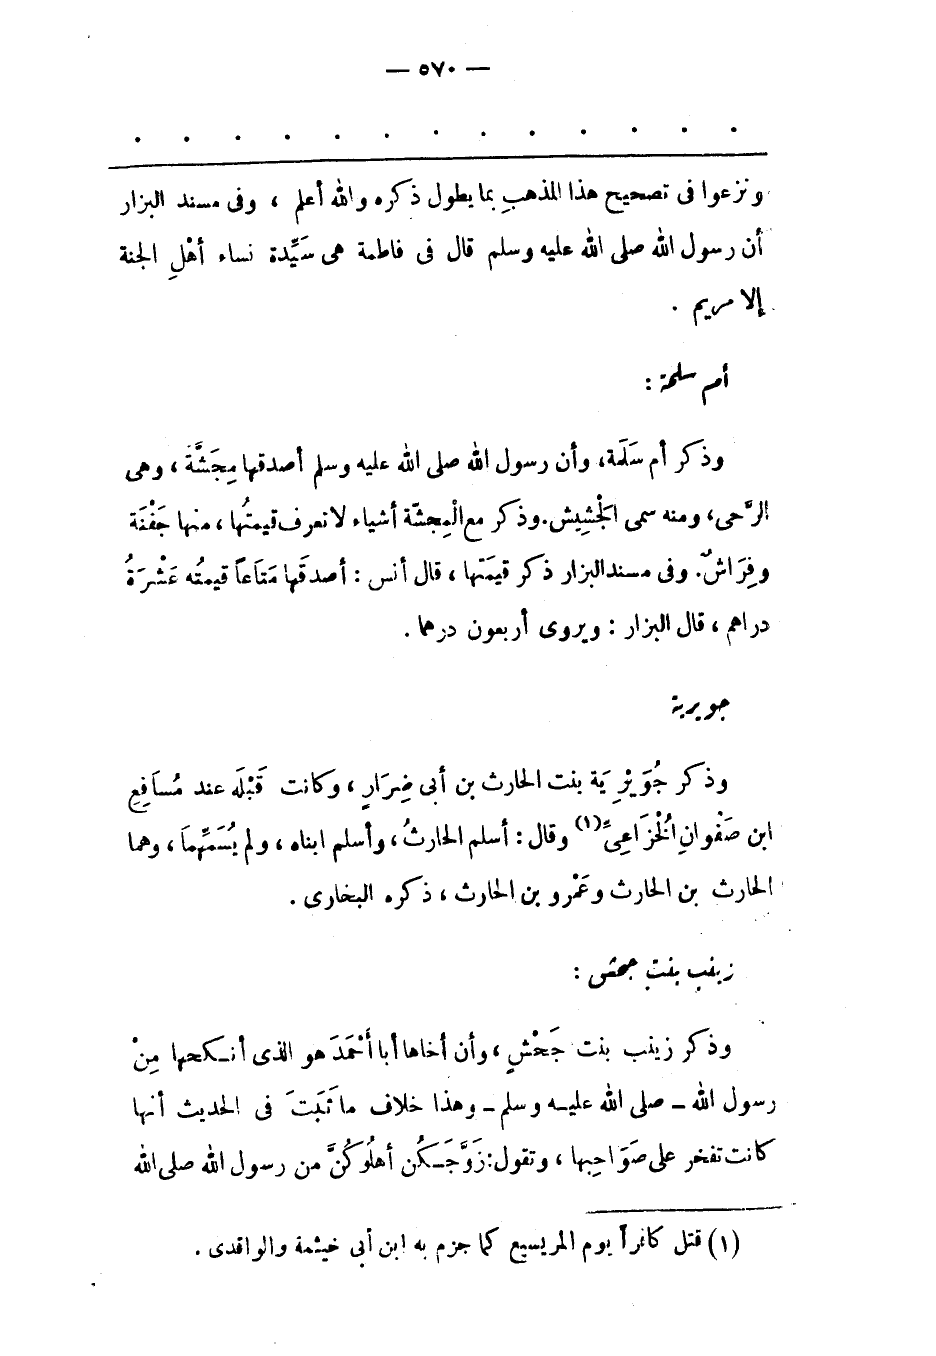 — ٥٧٠ —
. . . . . . . . . . . . .
ونزعوا فى تصحيح هذا المذهبِ بما يطول ذكره والله أعلم ، وفى مسند البزار
أن رسول الله صلى الله عليه وسلم قال فى فاطمة هى سَيِّدة نساء أهْلِ الجنة
إلا مريم .
أم سلمة :
وذكر أم سَلَمة، وأن رسول الله صلى الله عليه وسلم أصدقها مِجَشَّةً ، وهى
الرَّحى، ومنه سمى الجْشِيش. وذكر مع الْمِجشّة أشياء لا تعرف قيمتُها ، منها جَفْنَة
وفِرَاشٌ. وفى مسند البزار ذكر قيمَتها ، قال أنس : أصدقَها مَتاَعاً قيمتُه عَشْرَةُ
دراهم ، قال البزار : ويروى أربعون درهما .
جويرية
وذكر جُوَيْرِيَة بنت الحارث بن أبى ضِرَارٍ ، وكانت قَبْلَه عند مُسَافِعِ
ابن صَفْوانِ الْخزَاعِىِّ (١) وقال : أسلم الحارثُ ، وأسلم ابناه ، ولم يُسَمِّهِماَ ، وهما
الحارث بن الحارث وعَمْرو بن الحارث ، ذكره البخارى .
زينب بنت جحش :
وذكر زينب بنت جَحْشٍ ، وأن أخاها أبا أَحْمَدَ هو الذى أنكحها مِنْ
رسول الله – صلى الله عليه وسلم – وهذا خلاف ما ثَبَتَ فى الحديث أنها
كانت تفخر على صَوَاحِبها ، وتقول: زَوَّجَكُن أهلُوكُنَّ من رسول الله صلى الله
(١) قتل كافراً يوم المريسيع كما جزم به ابن أبى خيثمة والواقدى .